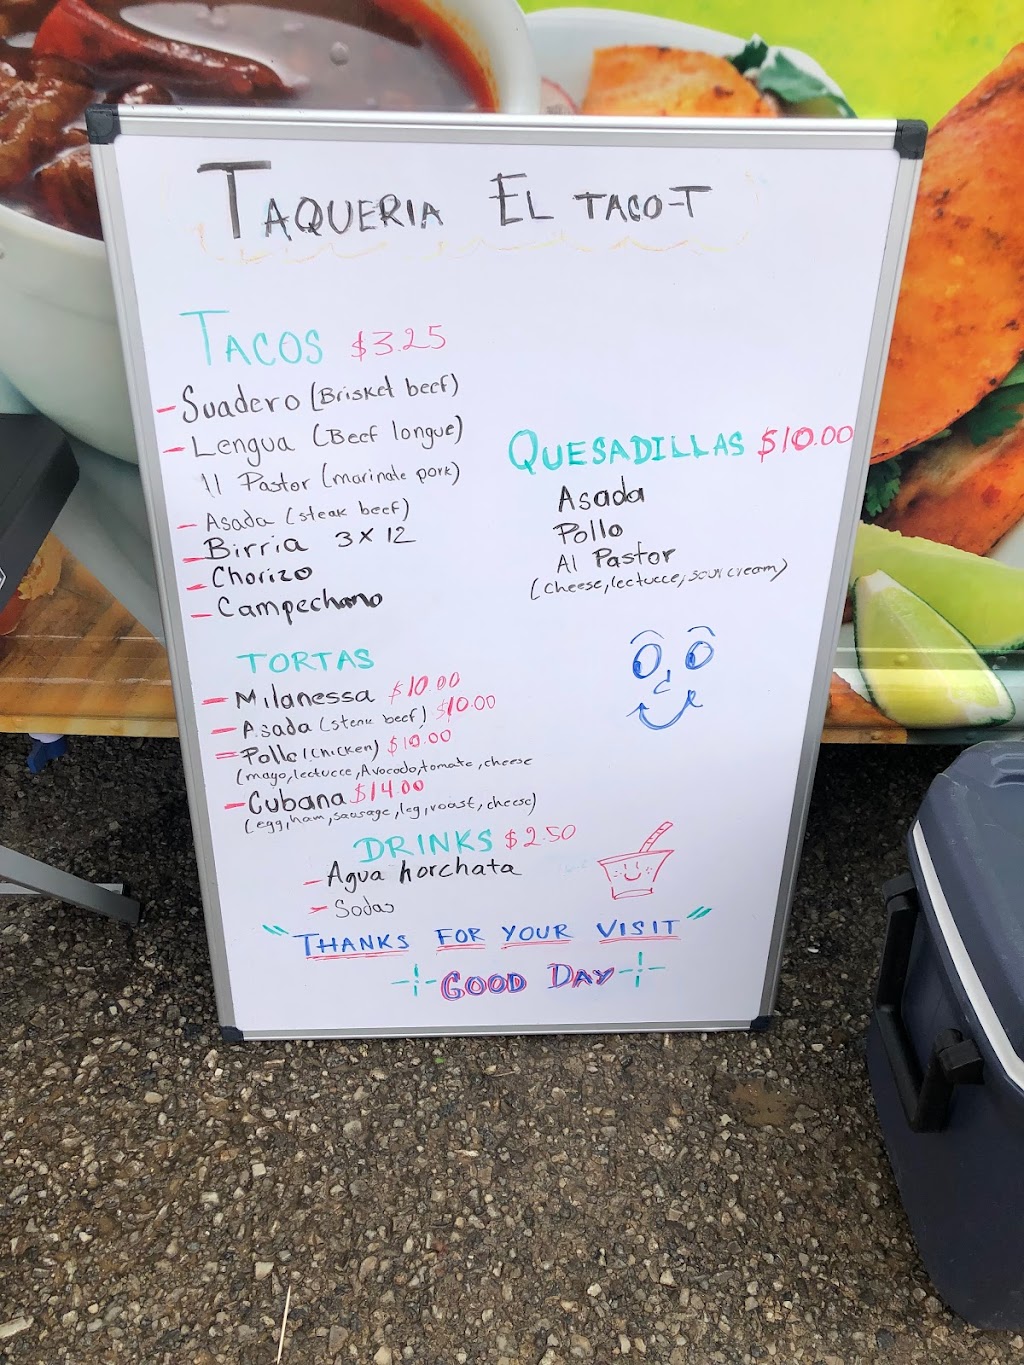 TAQUERIA EL TACO-T
TACOS $3.25
- Suadero (Brisket beef)
- Lengua (Beef longue)
\\ Pastor (marinate pork)
- Asada (steak beef)
- Birria 3x12
- Chorizo
- Campechano
QUESADILLAS $10.00
Asada
Pollo
Al Pastor
(cheese, lectucce, sour cream)
TORTAS
- Milanessa $10.00
- Asada (stenk beef) $10.00
- Pollo (chicken) $10.00
(mayo, lectucce, Avocado, tomate, cheese
- Cubana $14.00
(egg, ham, sausage, leg, roast, cheese)
DRINKS $2.50
- Agua horchata
- Sodas
"THANKS FOR YOUR VISIT"
GOOD DAY